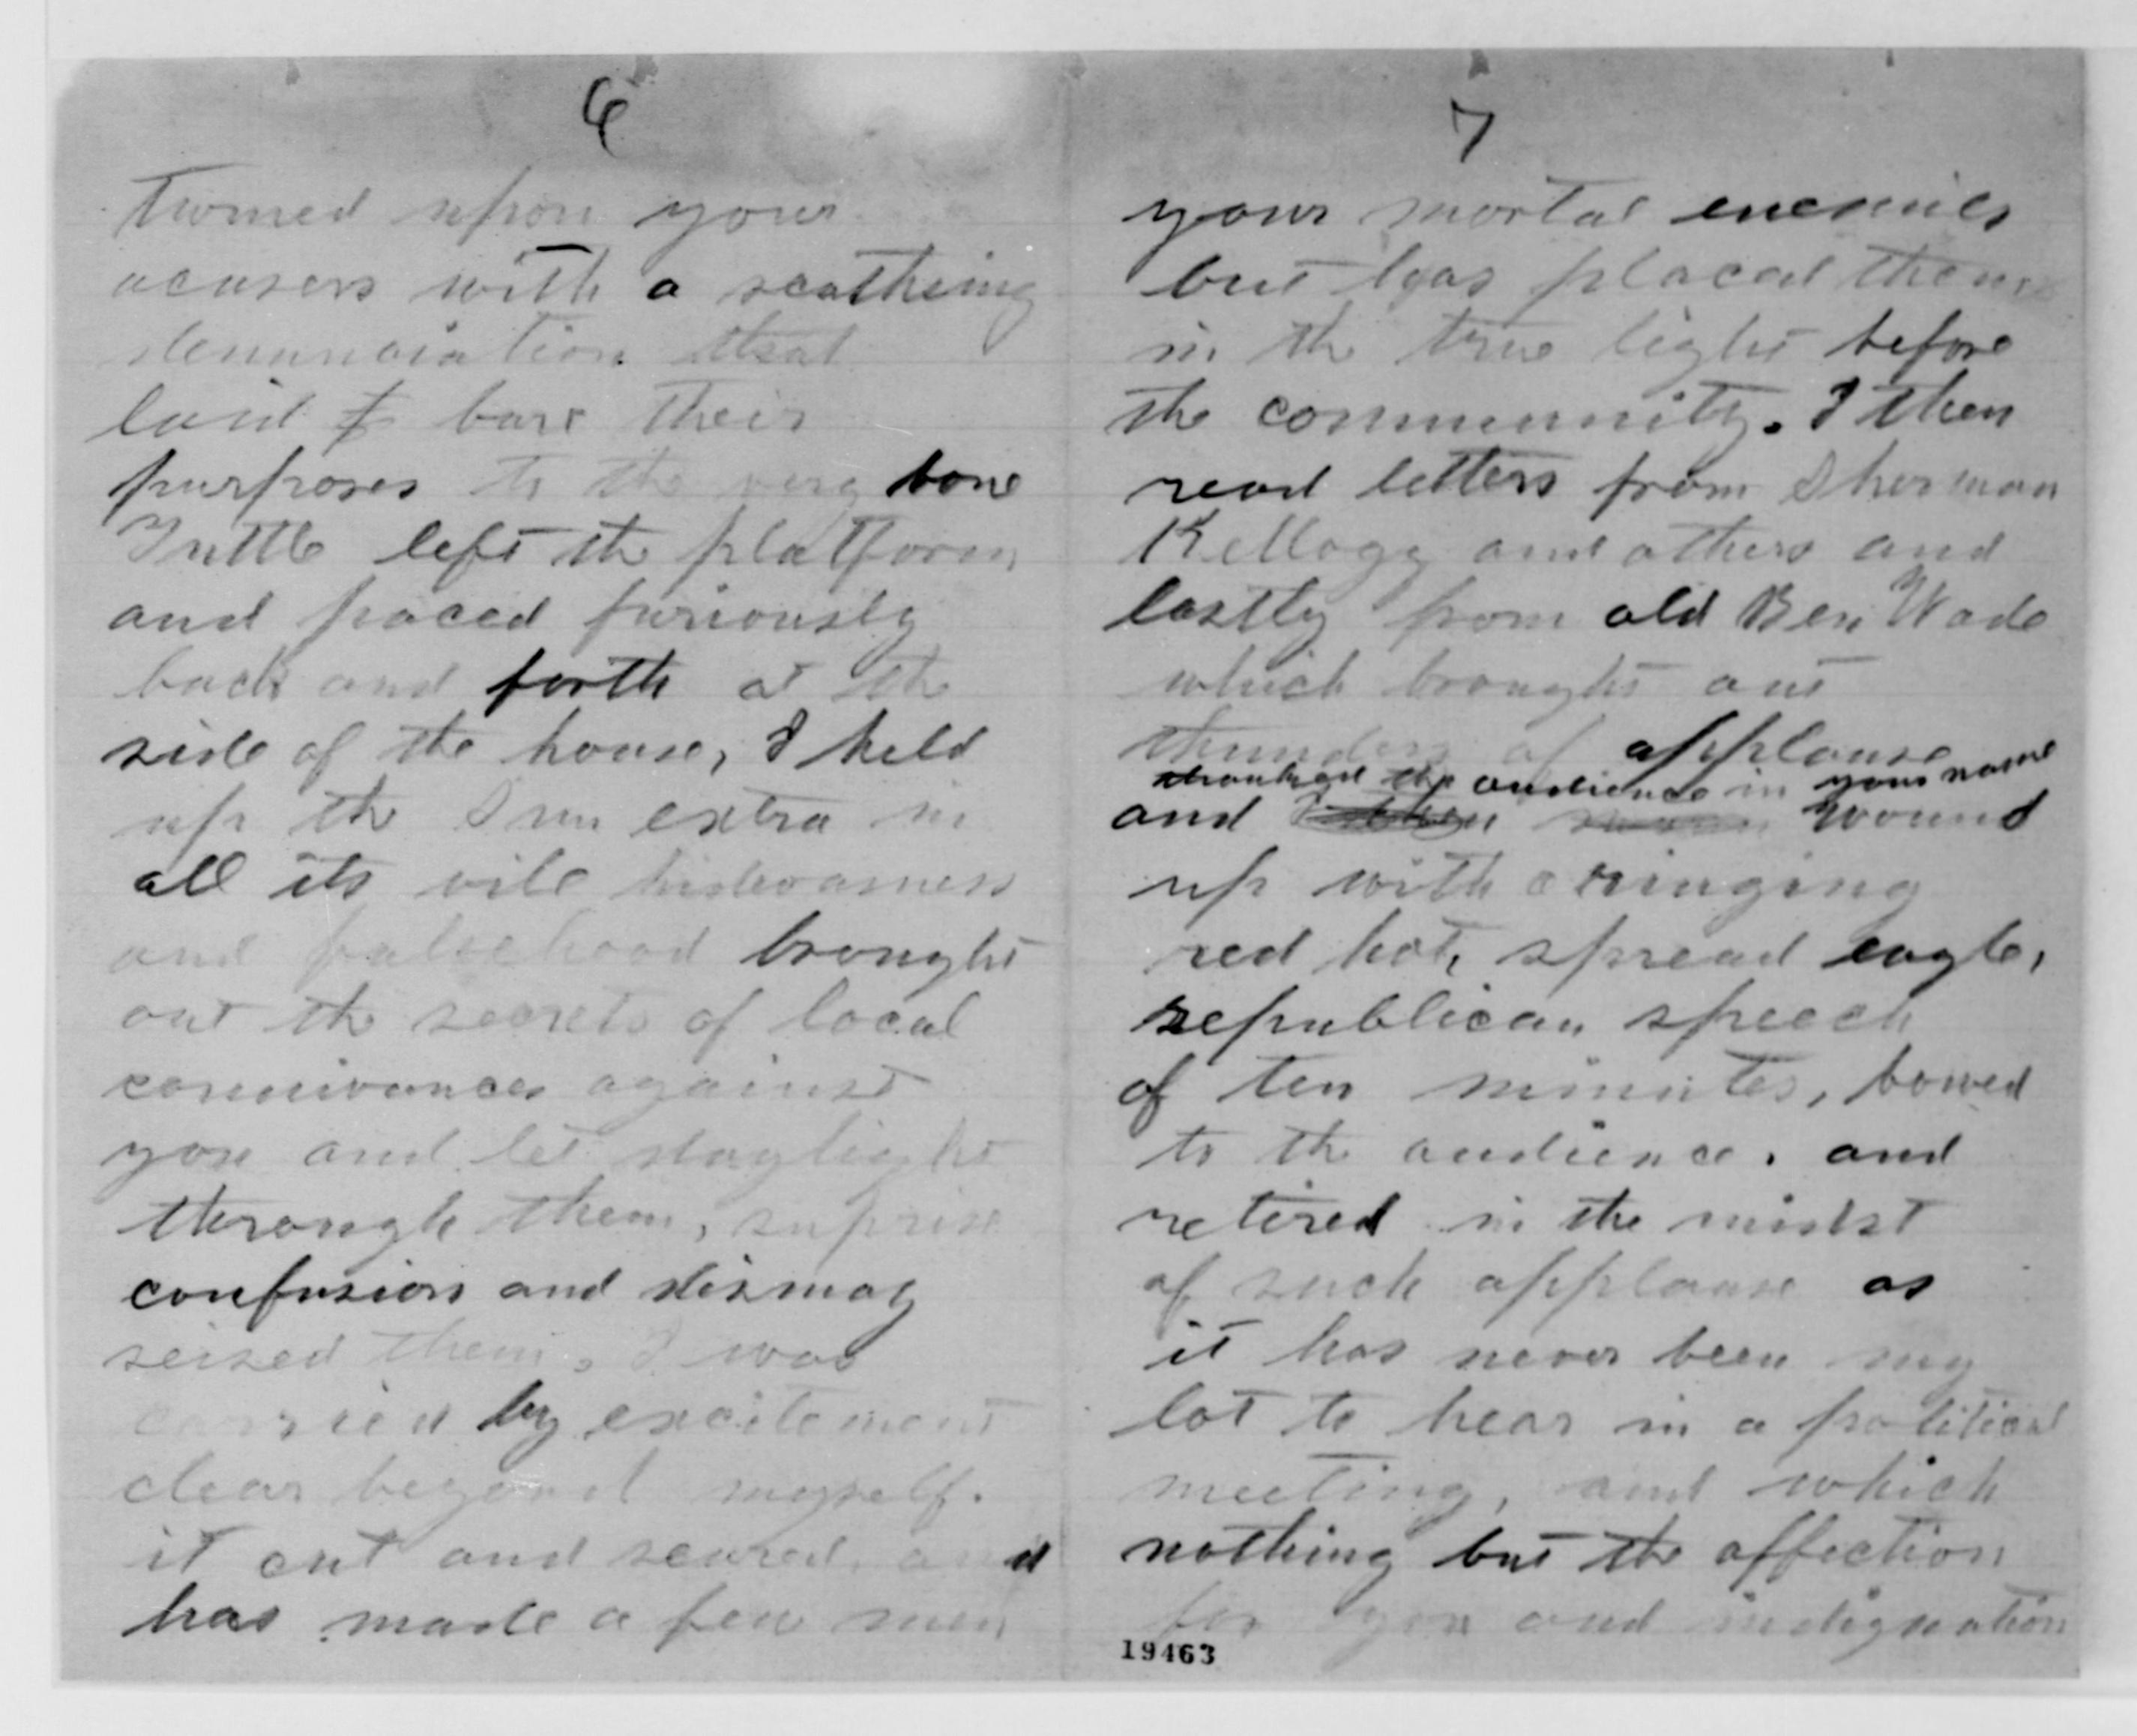 6
turned upon your
acusers with a scathing
denunciation that
laid to bare their
purposes to the very bone
Tuttle left the platform
and paced furiously
back and forth at the
side of the house, I held
up the Sun extra in
all its vile hideousness
and falsehood brought
out the secrets of local
connivances against
you and let daylight
through them, suprise
confusion and dismay
seized them. I was
carried by excitement
clear beyond myself.
it cut and seared, and
has made a few men
7
your mortal enemies
but has placed them
in the true light before
the community. I then
read letters from Sherman
Kellogg and others and
lastly from old Ben Wade
which brought out
thunders of applause
thanked the audience in your name
and I then wound
up with a ringing
red hot, spread eagle,
republican speech
of ten minutes, bowed
to the audience. and
retired in the midst
of such applause as
it has never been my
lot to hear in a political
meeting, and which
nothing but the affection
for you and indignation
19463